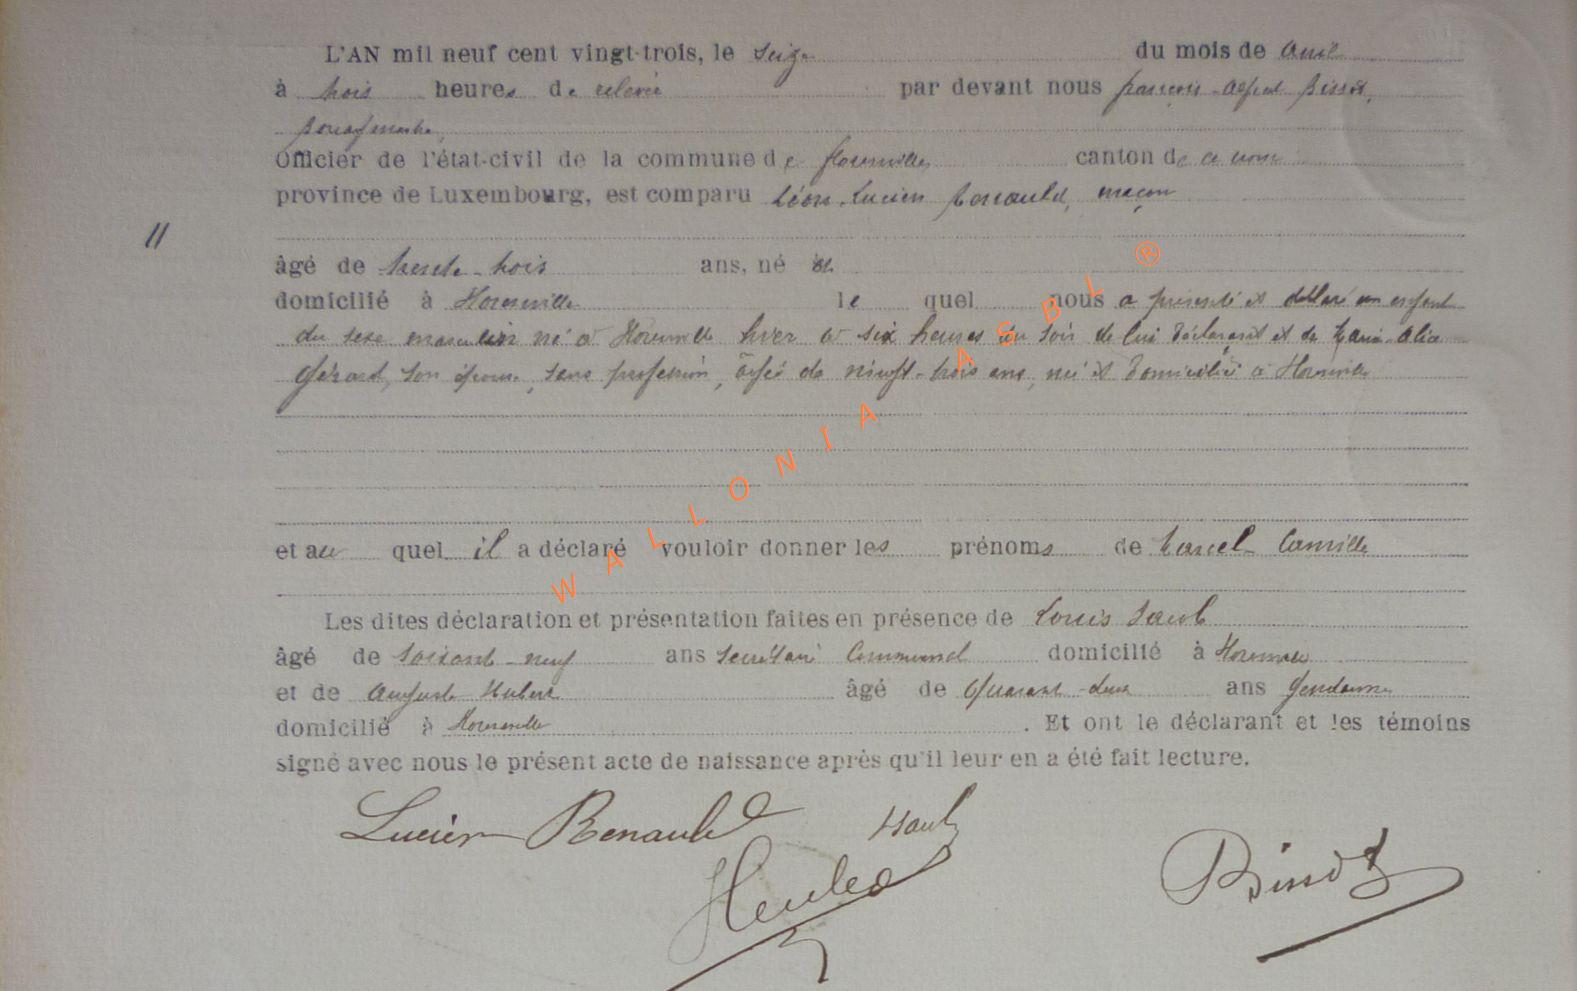 L'AN mil neuf cent vingt-trois, le seize du mois de avril
à trois heures de relevée par devant nous françois-alfred Binsot,
Bourgmestre,
Officier de l'état-civil de la commune de florenville canton de ce nom
province de Luxembourg, est comparu Léon-Lucien Renauld, maçon
11
âgé de trente-trois ans, né et
domicilié à Florenville le quel nous a présenté et déclaré un enfant
du sexe masculin né à Florenville hier à six heures du soir de lui déclarant et de Marie-Alice
Gérard, son épouse, sans profession, âgée de vingt-trois ans, née et domiciliée à Florenville
et au quel il a déclaré vouloir donner les prénoms de Marcel Camille
Les dites déclaration et présentation faites en présence de Louis
âgé de soixante-neuf ans secrétaire Communal domicilié à Florenville
et de Auguste Hubert âgé de Quarante-deux ans Gendarme
domicilié à Florenville. Et ont le déclarant et les témoins
signé avec nous le présent acte de naissance après qu'il leur en a été fait lecture.
Lucien Renauld
WALLONIA ASBL ®